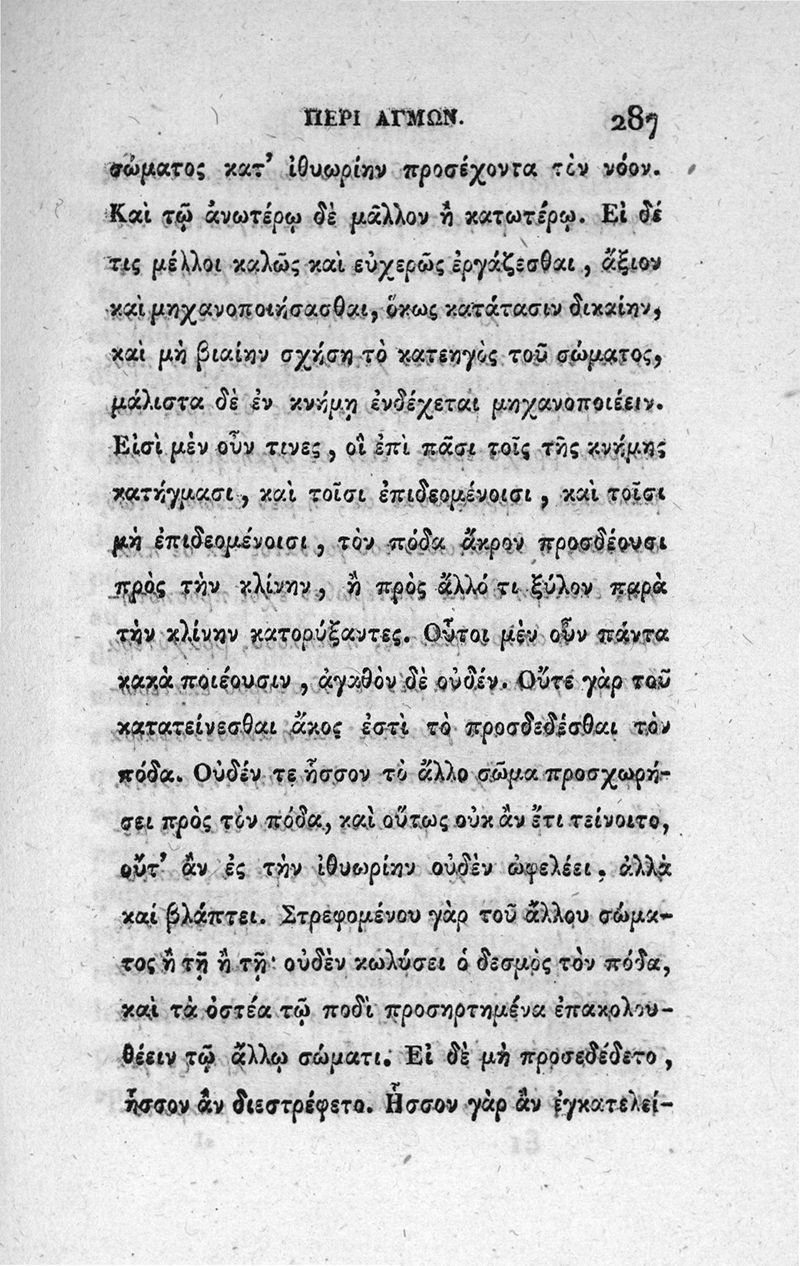 ΠΕΡΙ ΑΓΜΩΝ. 287
σώματος κατ’ ἰθυωρίην προσέχοντα τὸν νόον.
Καὶ τῷ ἀνωτέρῳ δὲ μᾶλλον ἢ κατωτέρῳ. Εἰ δέ
τις μέλλοι καλῶς καὶ εὐχερῶς ἐργάζεσθαι, ἄξιον
καὶ μηχανοποιήσασθαι, ὅκως κατάτασιν δικαίην,
καὶ μὴ βιαίην σχήσῃ τὸ κατεηγὸς τοῦ σώματος,
μάλιστα δὲ ἐν κνήμῃ ἐνδέχεται μηχανοποιέειν.
Εἰσὶ μὲν οὖν τινες, οἳ ἐπὶ πᾶσι τοῖς τῆς κνήμης
κατήγμασι, καὶ τοῖσι ἐπιδεομένοισι, καὶ τοῖσι
μὴ ἐπιδεομένοισι, τὸν πόδα ἄκρον προσδέουσι
πρὸς τὴν κλίνην, ἢ πρὸς ἄλλό τι ξύλον παρὰ
τὴν κλίνην κατορύξαντες. Οὗτοι μὲν οὖν πάντα
κακὰ ποιέουσιν, ἀγαθὸν δὲ οὐδέν. Οὔτε γὰρ τοῦ
κατατείνεσθαι ἄκος ἐστὶ τὸ προσδεδέσθαι τὸν
πόδα. Οὐδέν τε ἧσσον τὸ ἄλλο σῶμα προσχωρή-
σει πρὸς τὸν πόδα, καὶ οὕτως οὐκ ἂν ἔτι τείνοιτο,
οὔτ’ ἂν ἐς τὴν ἰθυωρίην οὐδὲν ὠφελέει, ἀλλὰ
καί βλάπτει. Στρεφομένου γὰρ τοῦ ἄλλου σώμα-
τος ἢ τῇ ἢ τῇ· οὐδὲν κωλύσει ὁ δεσμὸς τὸν πόδα,
καὶ τὰ ὀστέα τῷ ποδὶ προσηρτημένα ἐπακολου-
θέειν τῷ ἄλλῳ σώματι. Εἰ δὲ μὴ προσεδέδετο,
ἧσσον ἂν διεστρέφετο. Ἧσσον γὰρ ἂν ἐγκατελεί-